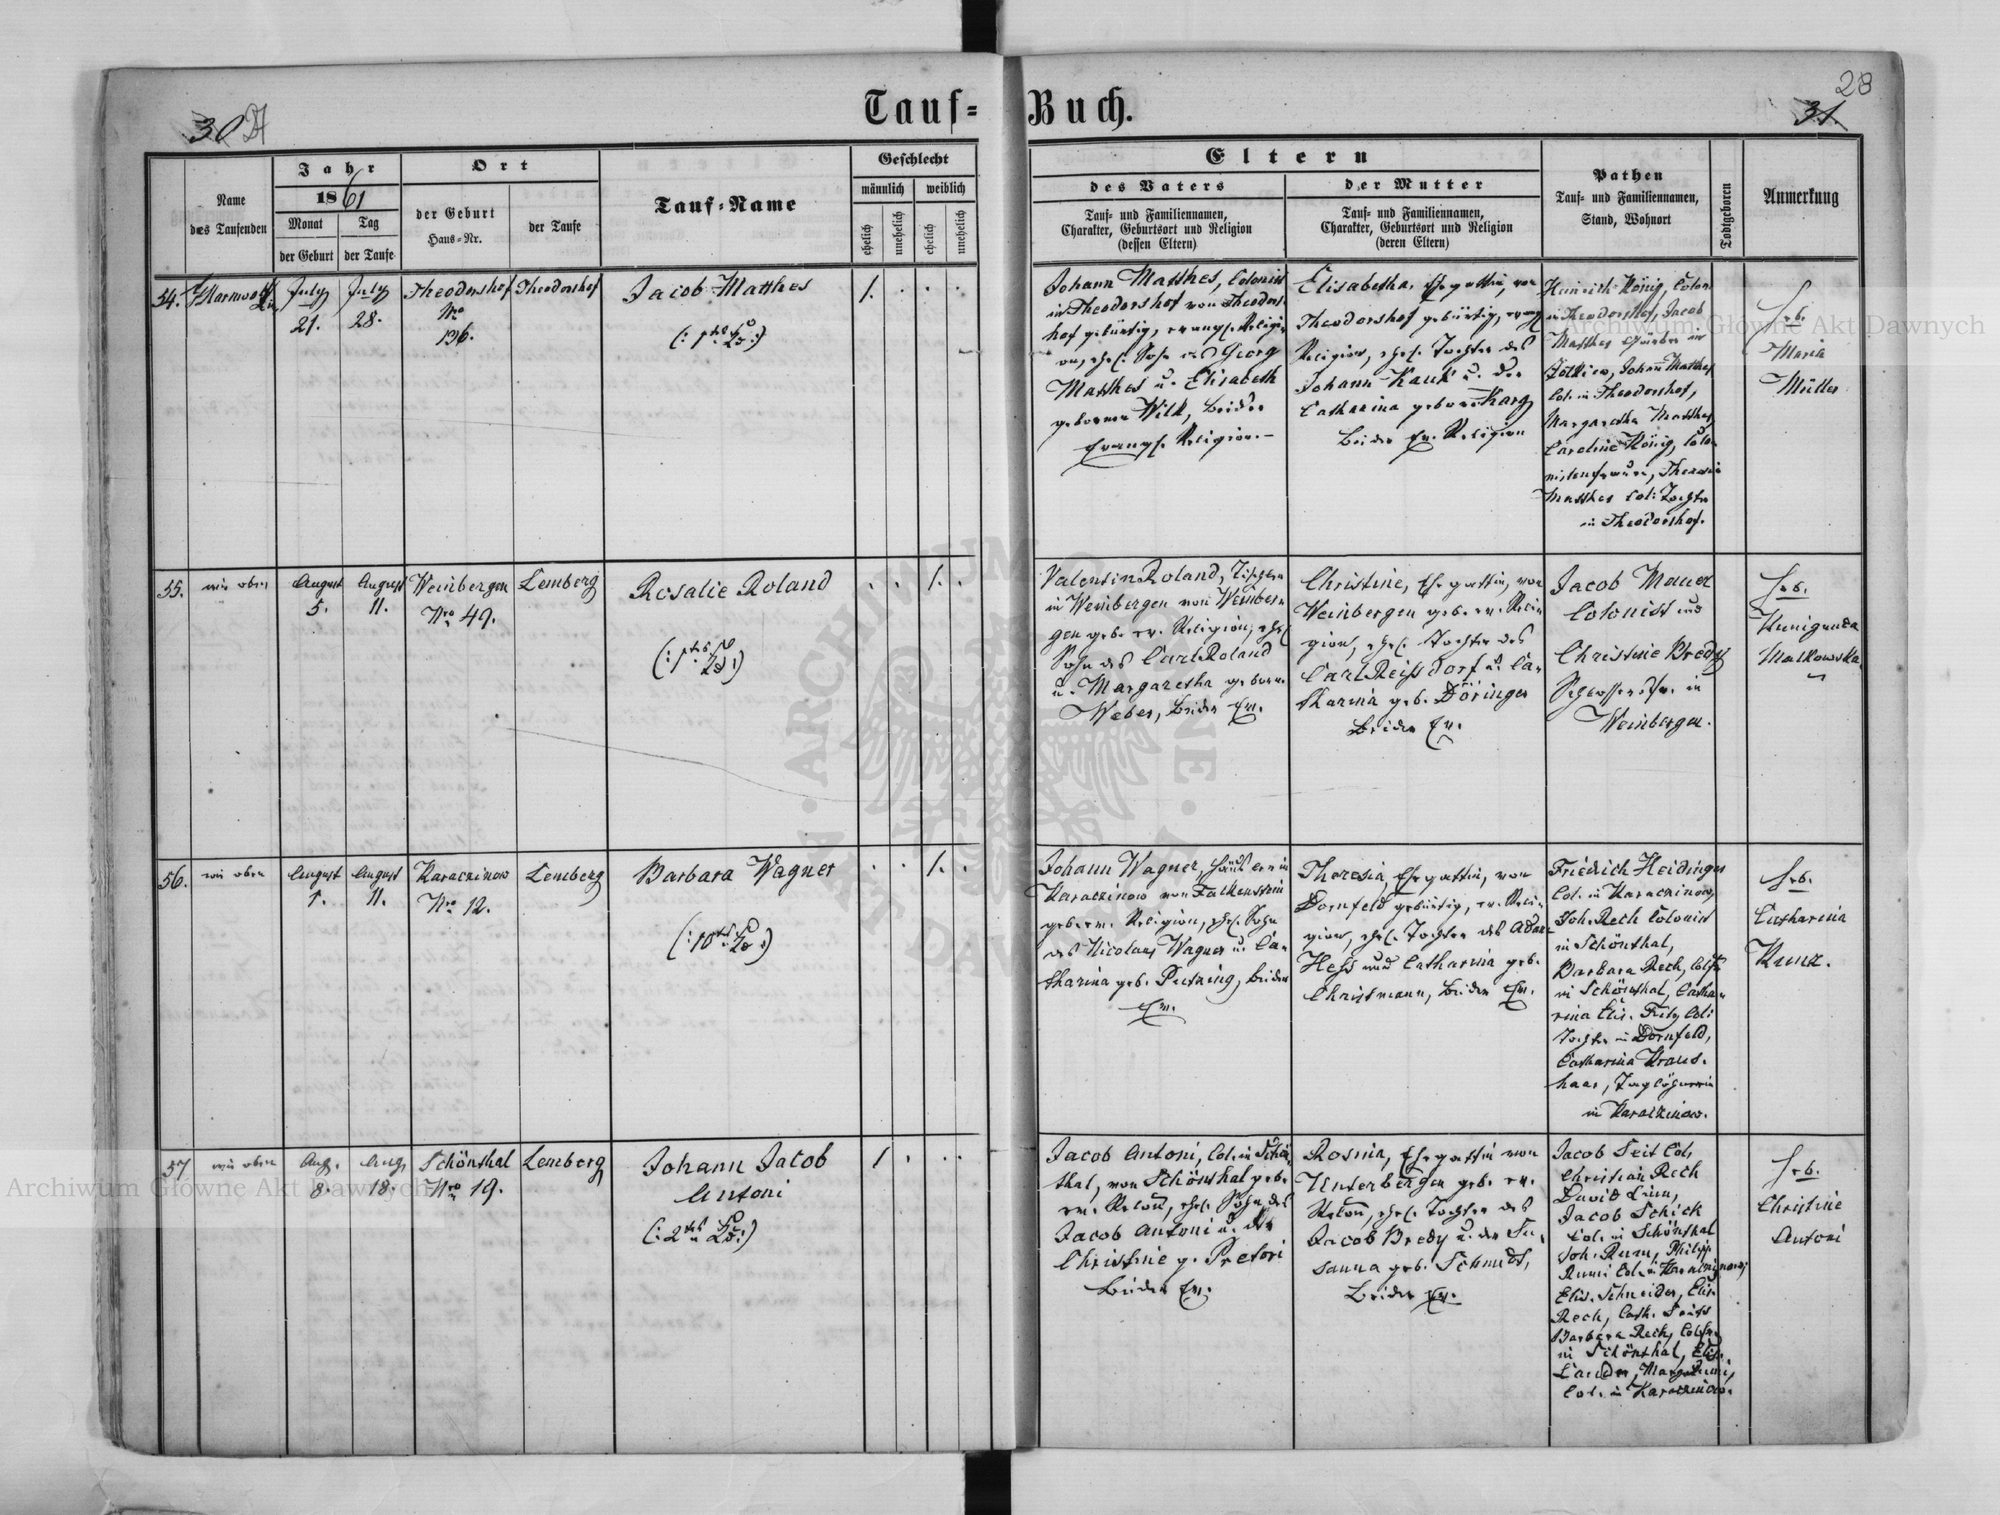 Tauf=Buch.
30
28
31.
Name
des Taufenden
Jahr
1861
Monat
der Geburt
Tag
der Taufe
Ort
der Geburt
Haus=Nr.
der Taufe
Tauf=Name
Geschlecht
männlich
weiblich
ehelich
unehelich
ehelich
unehelich
Eltern
des Vaters
Tauf= und Familiennamen,
Charakter, Geburtsort und Religion
(dessen Eltern)
der Mutter
Tauf= und Familiennamen,
Charakter, Geburtsort und Religion
(deren Eltern)
Pathen
Tauf= und Familiennamen,
Stand, Wohnort
Todtgeboren
Anmerkung
54.
July
21.
July
28.
Theodorshof
Nro
136.
Theodorshof
Jacob Matthes
1.
Johann Matthes, Colonist
in Theodorshof von Theodors-
hof gebürtig, evangl. Religi-
on, ehel. Sohn des Georg
Matthes u. Elisabeth
geborenen Wilk, beider
Evangl. Religion.
Elisabetha, Ehegattin, von
Theodorshof gebürtig, evangl
Religion, ehel. Tochter des
Johann Kauk u. der
Catharina geborne Karg
beider Ev. Religion
Heinrich König, Colon.
in Theodorshof, Jacob
Matthes in
Zolkiew, Johann Matthes
Col. in Theodorshof,
Margaretha Matthes,
Caroline König, Colo-
nistenfrauen, Theresia
Matthes Col. Tochter
in Theodorshof.
Heb.
Maria
Müller
55.
wie oben
August
5.
August
11.
Weinbergen
Nro 49.
Lemberg
Rosalie Roland
1.
Valentin Roland,
in Weinbergen von Weinber-
gen geb. ev. Religion, ehel.
Sohn des Carl Roland
u. Margaretha geborne
Weber, beider Ev.
Christine, Ehegattin, von
Weinbergen geb. ev. Reli-
gion, ehel. Tochter des
Carl Reissdorf u. Ca-
tharina geb. Döringer
beider Ev.
Jacob Mauer
Colonist und
Christine Bredy
in
Weinbergen.
Heb.
Kunigunda
Malkowska
56.
wie oben
August
August
11.
Karaczinow
Nro 12.
Lemberg
Barbara Wagner
1.
Johann Wagner, in
Karaczinow von Falkenstein
geb. ev. Religion, ehel. Sohn
des Nicolaus Wagner u. Ca-
tharina geb. beider
Ev.
Theresia, Ehegattin, von
Dornfeld gebürtig, ev. Reli-
gion, ehel. Tochter des Adam
Hess und Catharina geb.
Christmann, beider Ev.
Friedrich Heidinger
Col. in Karaczinow,
Joh. Rech Colonist
in Schönthal,
Barbara Rech,
in Schönthal, Catha-
rina Elis. Fritz Col.
Tochter in Dornfeld,
Catharina Kraus-
haar, Taglöhnerin
in Karaczinow.
Heb.
Catharina
Kunz.
57
wie oben
Aug.
8.
Aug.
18.
Schönthal
Nro 19.
Lemberg
Johann Jacob
Antoni
1
Jacob Antoni, Col. in Schön-
thal, von Schönthal geb.
ev. Relion, ehel. Sohn des
Jacob Antoni u. der
Christine g. Pretori
beider Ev.
Rosina, Ehegattin von
Unterbergen geb. ev.
Relion, ehel. Tochter des
Jacob Bredy u. der Su-
sanna geb. Schmidt,
beider Ev.
Jacob Seit Col.
Christian Rech
David
Jacob Schick
Col. in Schönthal
Joh. Philipp
Col. in Karaczinow,
Elis. Schneider, Elis.
Rech, Cath.
Barbara Rech,
in Schönthal, Elis.
Lander,
Col. in Karaczinow.
Heb.
Christine
Antoni
Archiwum Główne Akt Dawnych
Archiwum Główne Akt Dawnych
ARCHIWUM GŁÓWNE AKT DAWNYCH